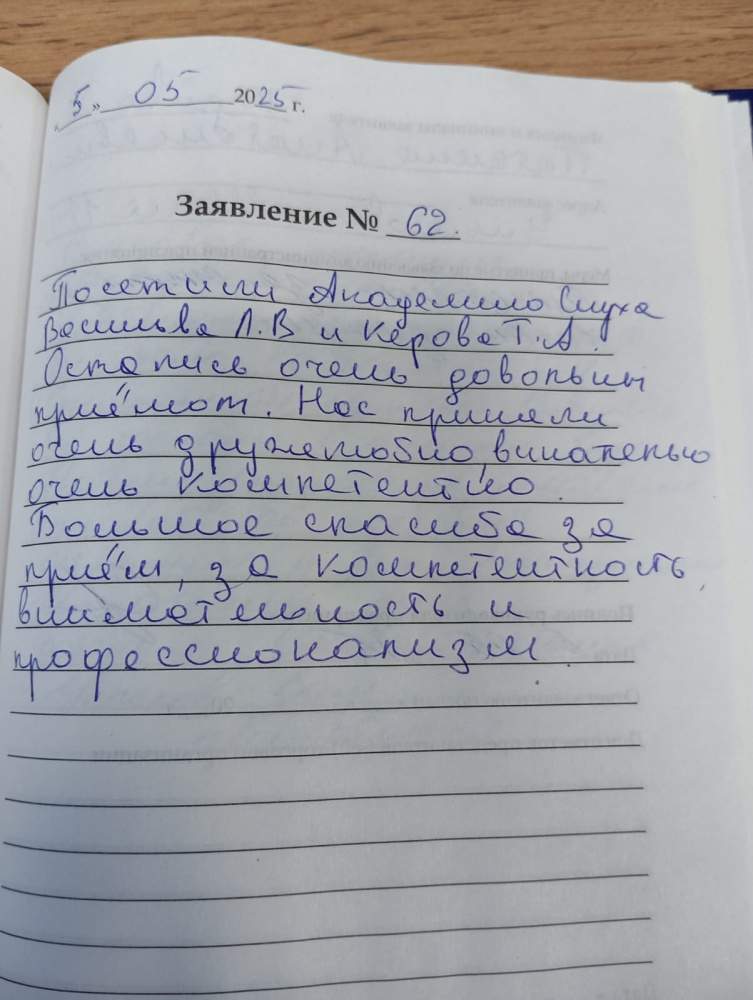 «5» 05 2025 г.
Заявление № 62.
Посетили Академию Слуха
Васильва Л.В и Керова Т.А.
Остались очень довольны
приёмот. Нас приняли
очень дружелюбно,
очень компетентно.
Большое спасиба за
приём, за компетентность,
внимательность и
профессионализм.